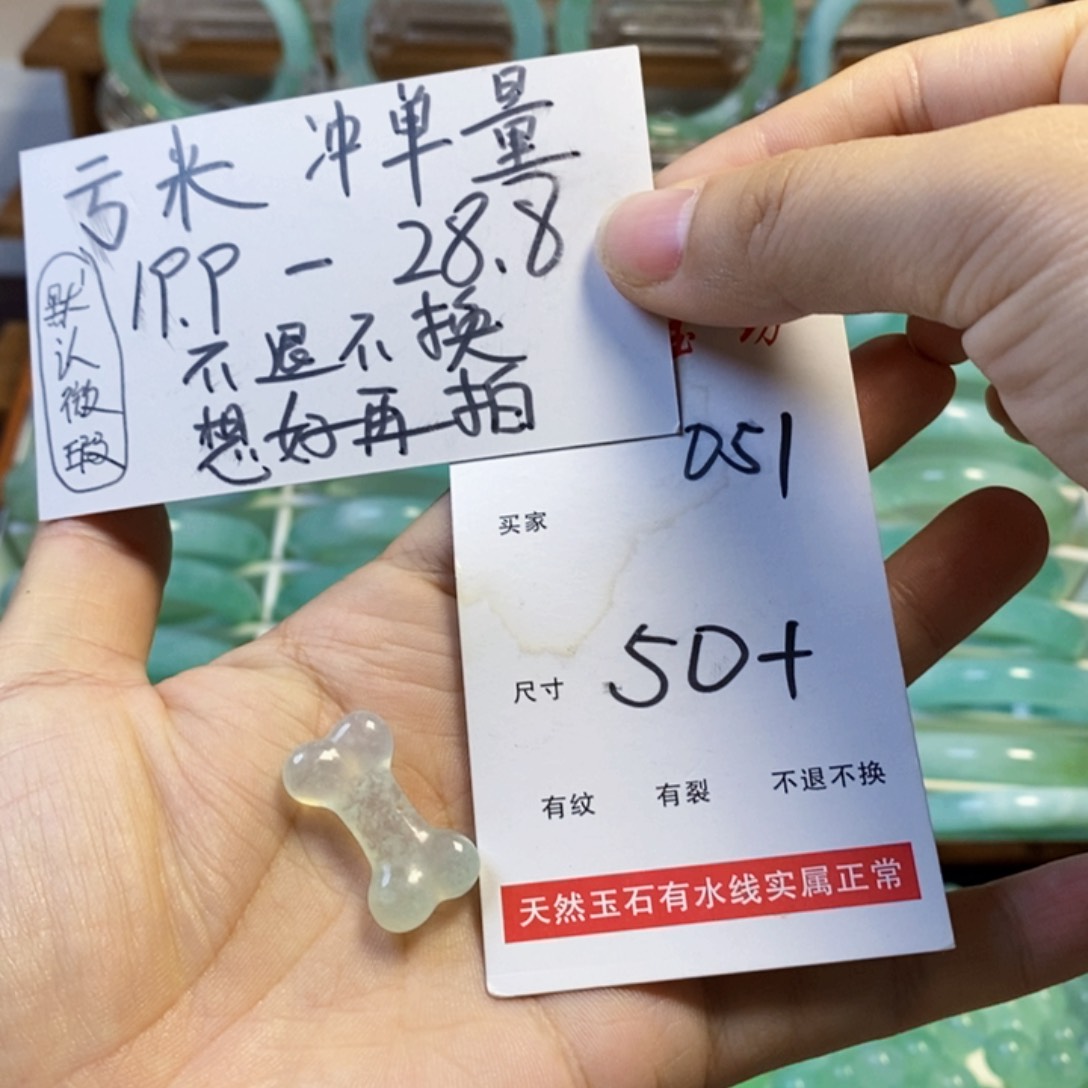 亏米 冲单量
19.9 - 28.8
不退不换
想好再拍
默认微瑕
051
买家
尺寸 50+
有纹 有裂 不退不换
天然玉石有水线实属正常